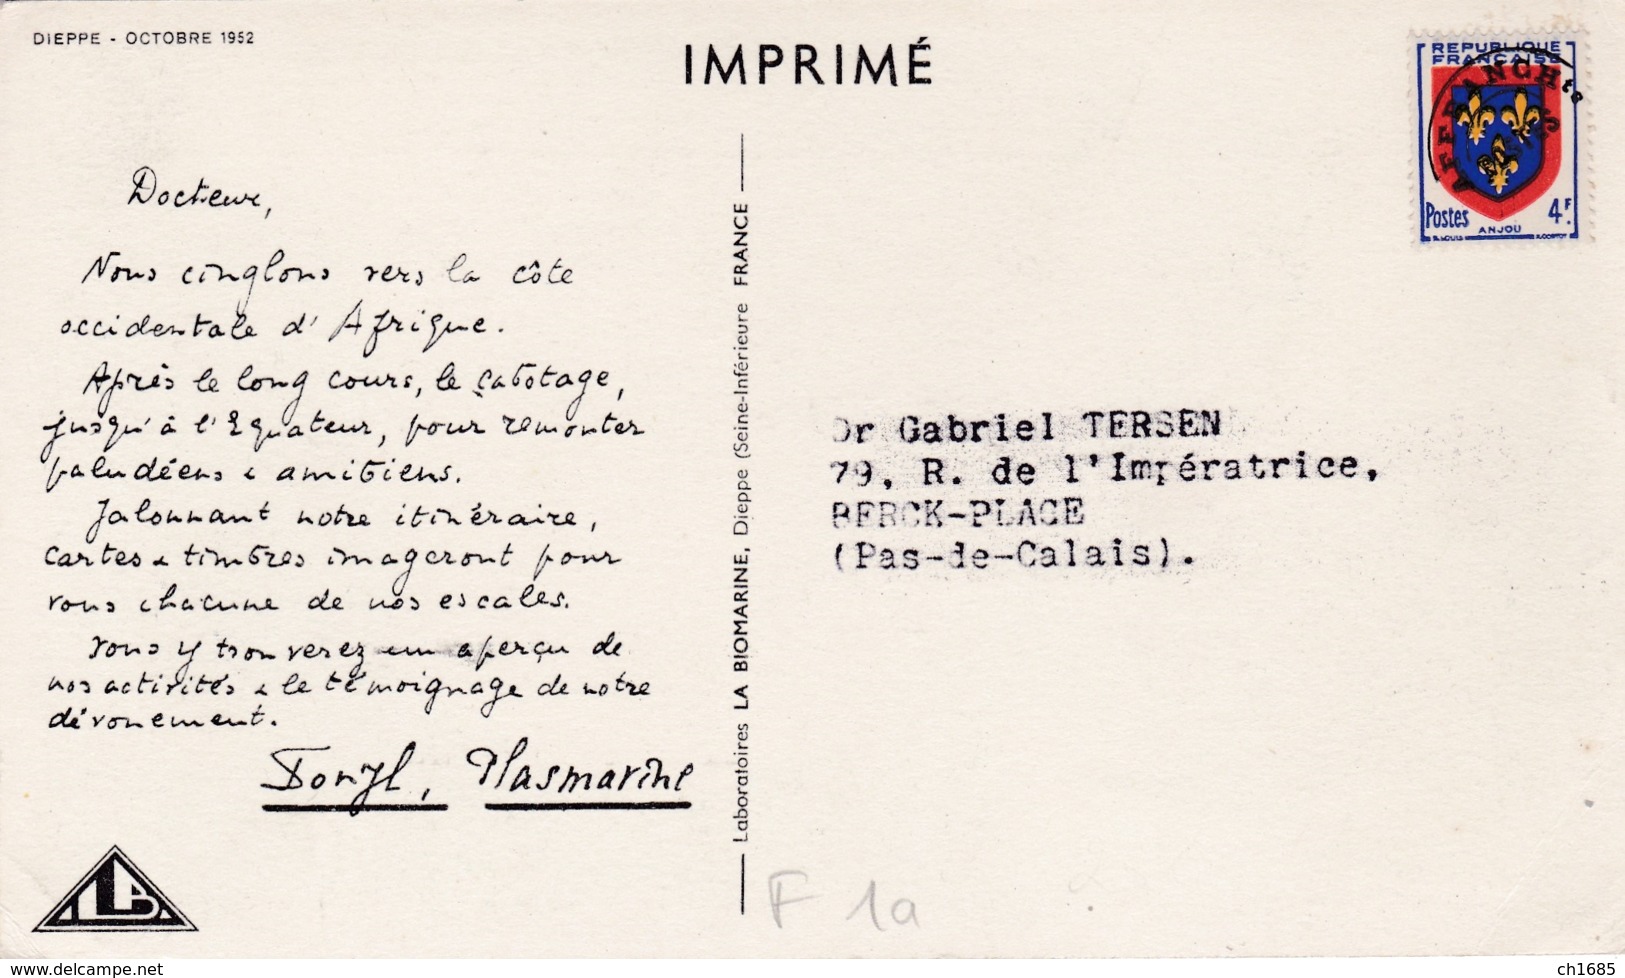 DIEPPE - OCTOBRE 1952
IMPRIMÉ
REPUBLIQUE
FRANÇAISE
AFFRANCHts
POSTES
Postes 4F.
ANJOU
Docteur,
Nous cinglons vers la côte
occidentale d'Afrique.
Après le long cours, le cabotage,
jusqu'à l'Equateur, pour remonter
paludéens & amibiens.
Jalonnant notre itinéraire,
cartes & timbres imageront pour
vous chacune de nos escales.
Vous y trouverez un aperçu de
nos activités & le témoignage de notre
dévouement.
Ionyl, Plasmarine
Laboratoires LA BIOMARINE, Dieppe (Seine-Inférieure FRANCE
Dr Gabriel TERSEN
79, R. de l'Impératrice,
BERCK-PLAGE
(Pas-de-Calais).
LAB
F 1a
www.delcampe.net
ch1685